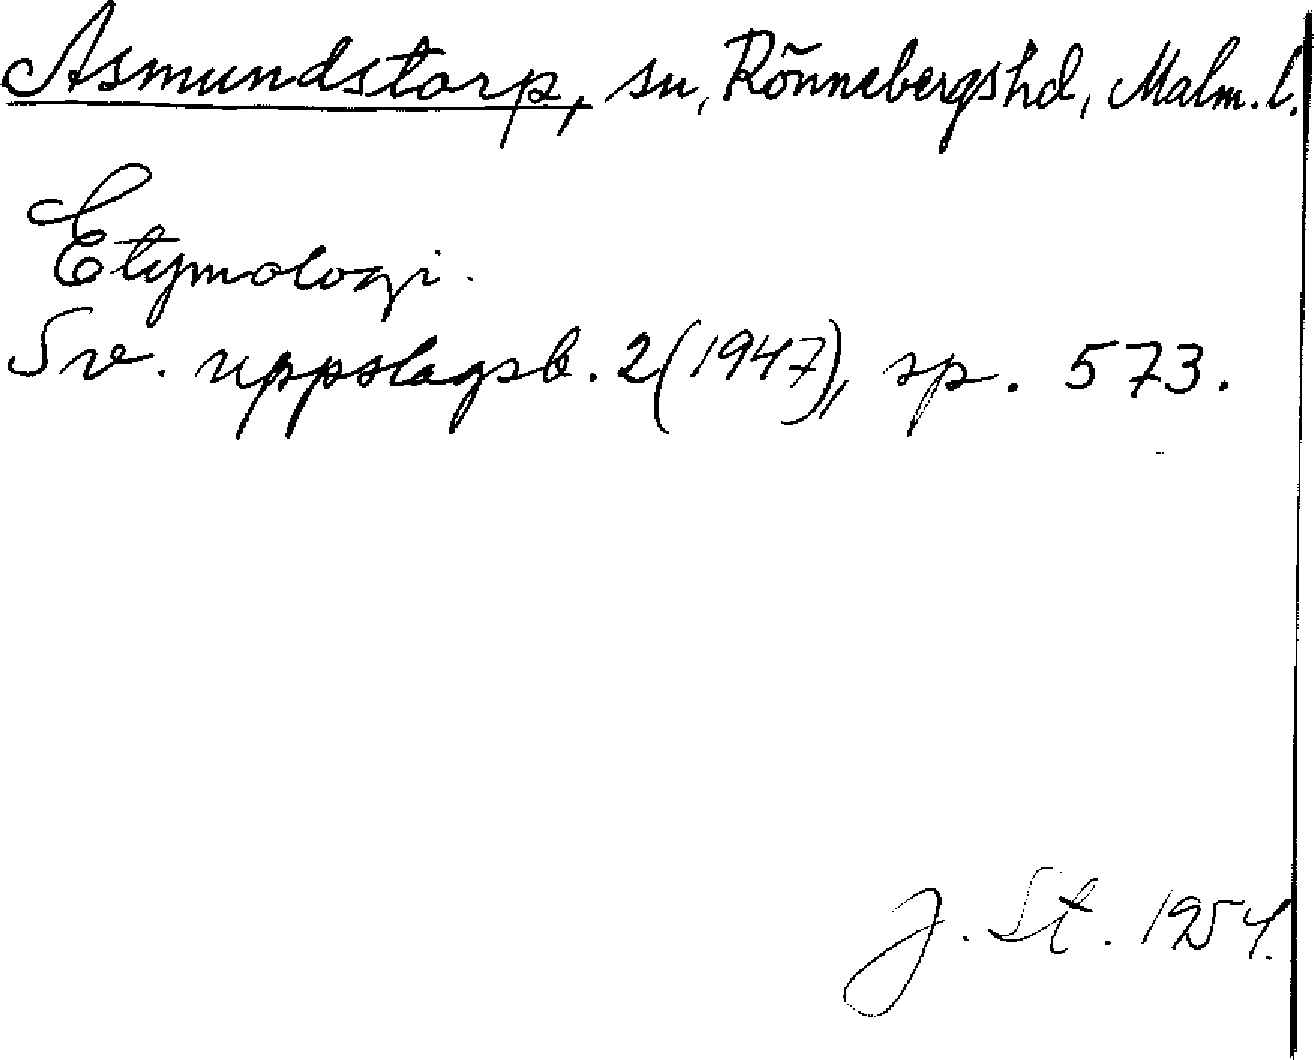 Asmundstorp, sn, Rönnebergshd, Malm. l.
Etymologi.
Sv. uppslagsb. 2 (1947), sp. 573.
J. St. 1954.